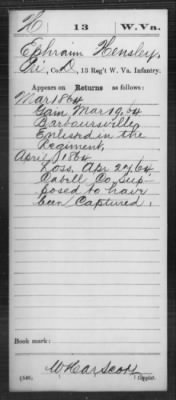 H 13 W.Va.
Ephraim Hensley,
Pri, Co. D, 13 Reg't W. Va. Infantry.
Appears on Returns as follows:
Mar 1864
Gain Mar 19, 64
Barboursville
Enlisted in the
Regiment.
April, 1864
Loss. Apr 27 64
Cabell Co. Sup-
posed to have
been Captured.
Book mark:
(546) Copyist.